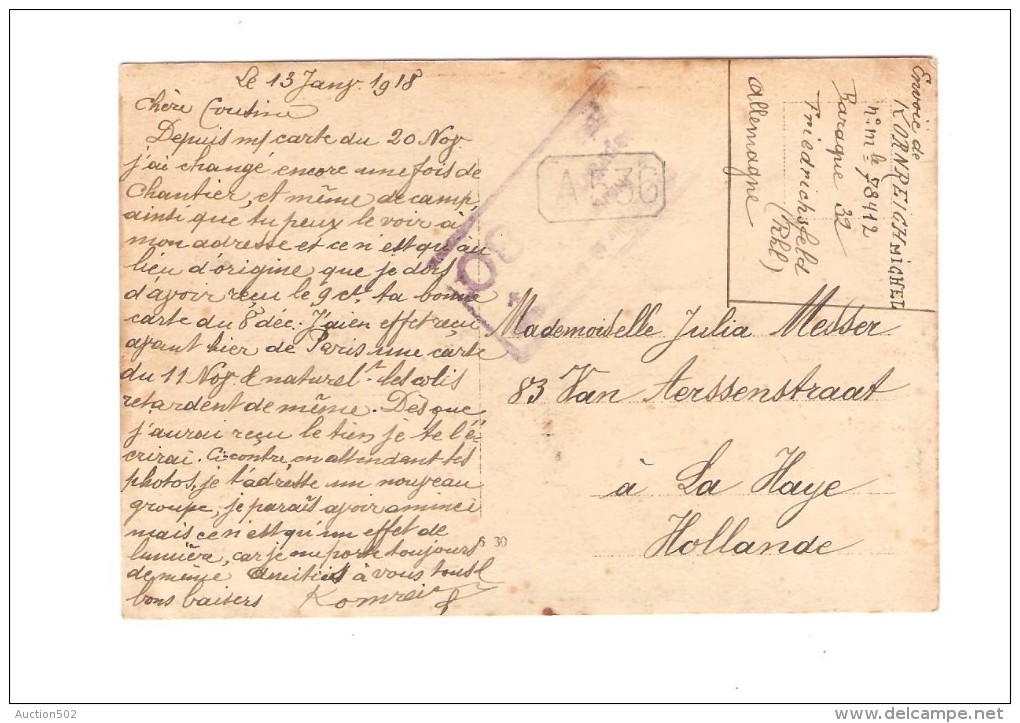 Le 13 Janv. 1918
Chère Cousine
Depuis m/ carte du 20 Nov
j'ai changé encore une fois de
Chantier, et même de camp,
ainsi que tu peux le voir à
mon adresse et ce n'est qu'au
lieu d'origine que je dois
d'avoir reçu le 9 ct. ta bonne
carte du 8 déc. J'ai en effet reçu
avant hier de Paris une carte
du 11 Nov. & naturel.t les colis
retardent de même. Dès que
j'aurai reçu le tien je te l'é-
crirai. Ci-contre, en attendant tes
photos, je t'adresse un nouveau
groupe, je parais avoir aminci
mais ce n'est qu'un effet de
lumière, car je me porte toujours
de même Amitiés à vous tous &
bons baisers
6 30
A 536
Envoie de
KORNREICH MICHEL
n° mle 78412
Baraque 32
Friedrichsfeld
(Rhl)
Allemagne
Mademoiselle Julia Messer
83 Van Aerssenstraat
à La Haye
Hollande
Auction502
delcampe.net